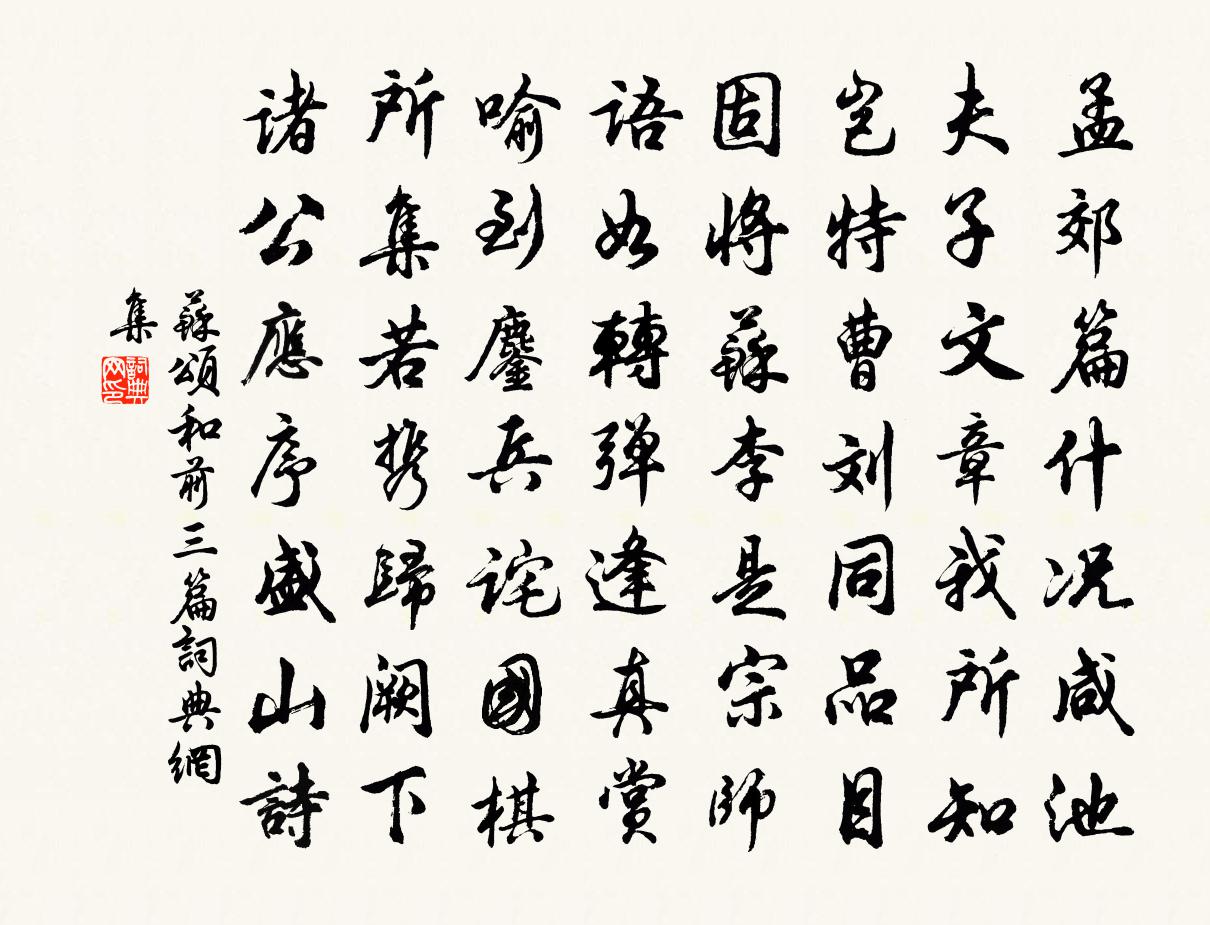 孟郊篇什况咸池
夫子文章我所知
岂特曹刘同品目
固将蘇李是宗師
語如轉弹逢真赏
喻到鏖兵诧國棋
所集若携歸阙下
诸公應序盛山詩
蘇頌和前三篇詞典網
集
詞典
网印